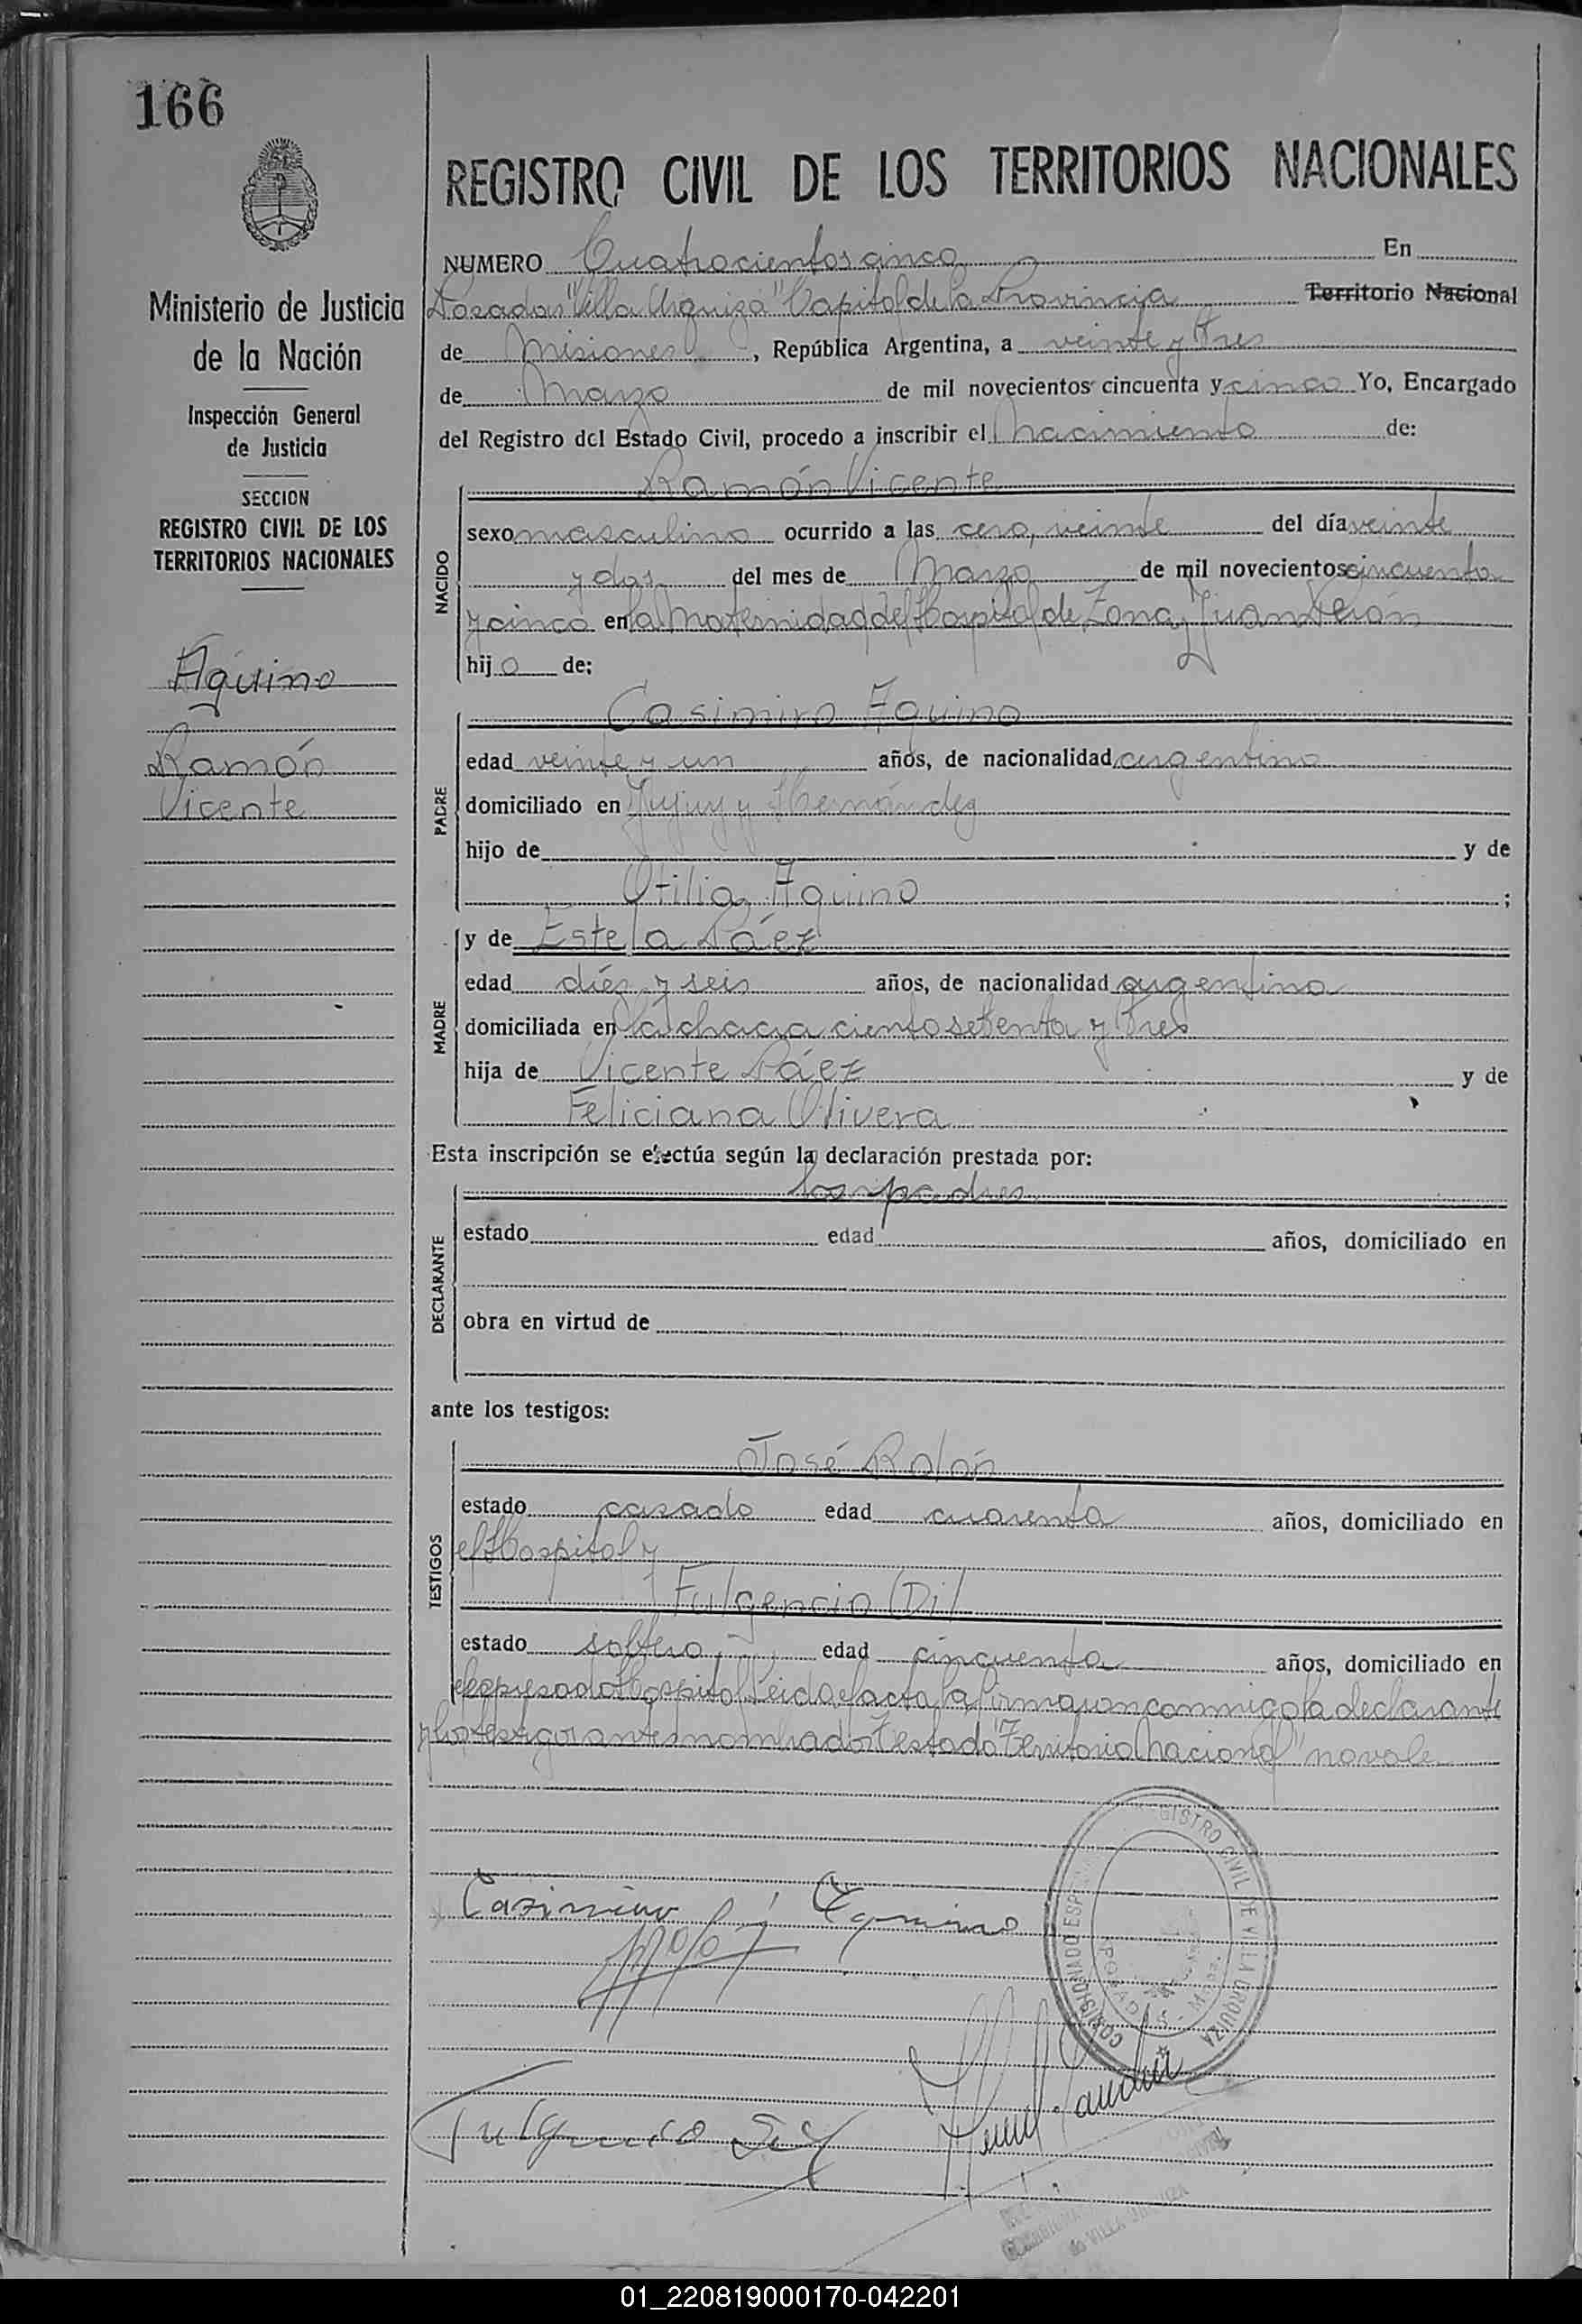 166
REGISTRO CIVIL DE LOS TERRITORIOS NACIONALES
Ministerio de Justicia
de la Nación
Inspección General
de Justicia
SECCION
REGISTRO CIVIL DE LOS
TERRITORIOS NACIONALES
Aquino
Ramón
Vicente
NUMERO Cuatrocientos cinco En
Posadas "Villa Urquiza" Capital de la Provincia Territorio Nacional
de Misiones, República Argentina, a veinte y tres
de Marzo de mil novecientos cincuenta y cinco Yo, Encargado
del Registro del Estado Civil, procedo a inscribir el nacimiento de:
NACIDO
Ramón Vicente
sexo masculino ocurrido a las cero, veinte del día veinte
y dos del mes de Marzo de mil novecientos cincuenta
y cinco en la Maternidad del Hospital de Zona, Juan Perón
hijo de:
PADRE
Casimiro Aquino
edad veinte y un años, de nacionalidad argentino
domiciliado en Jujuy y Hernández
hijo de y de
Otilia Aquino ;
MADRE
y de Estela Páez
edad diés y seis años, de nacionalidad argentina
domiciliada en la chacra ciento setenta y tres
hija de Vicente Páez y de
Feliciana Olivera
Esta inscripción se efectúa según la declaración prestada por:
DECLARANTE
los padres
estado edad años, domiciliado en
obra en virtud de
ante los testigos:
TESTIGOS
José Rolón
estado casado edad cuarenta años, domiciliado en
el Hospital y
Fulgencio Dil
estado soltero edad cincuenta años, domiciliado en
el expresado Hospital Leida el acta, la firmaron conmigo la declarante
y los testigos antes nombrados Testado "Territorio Nacional" no vale
Casimiro Aquino
REGISTRO CIVIL DE VILLA URQUIZA
COMISIONADO
POSADAS
Fulgencio Dil
de VILLA URQUIZA
01_220819000170-042201